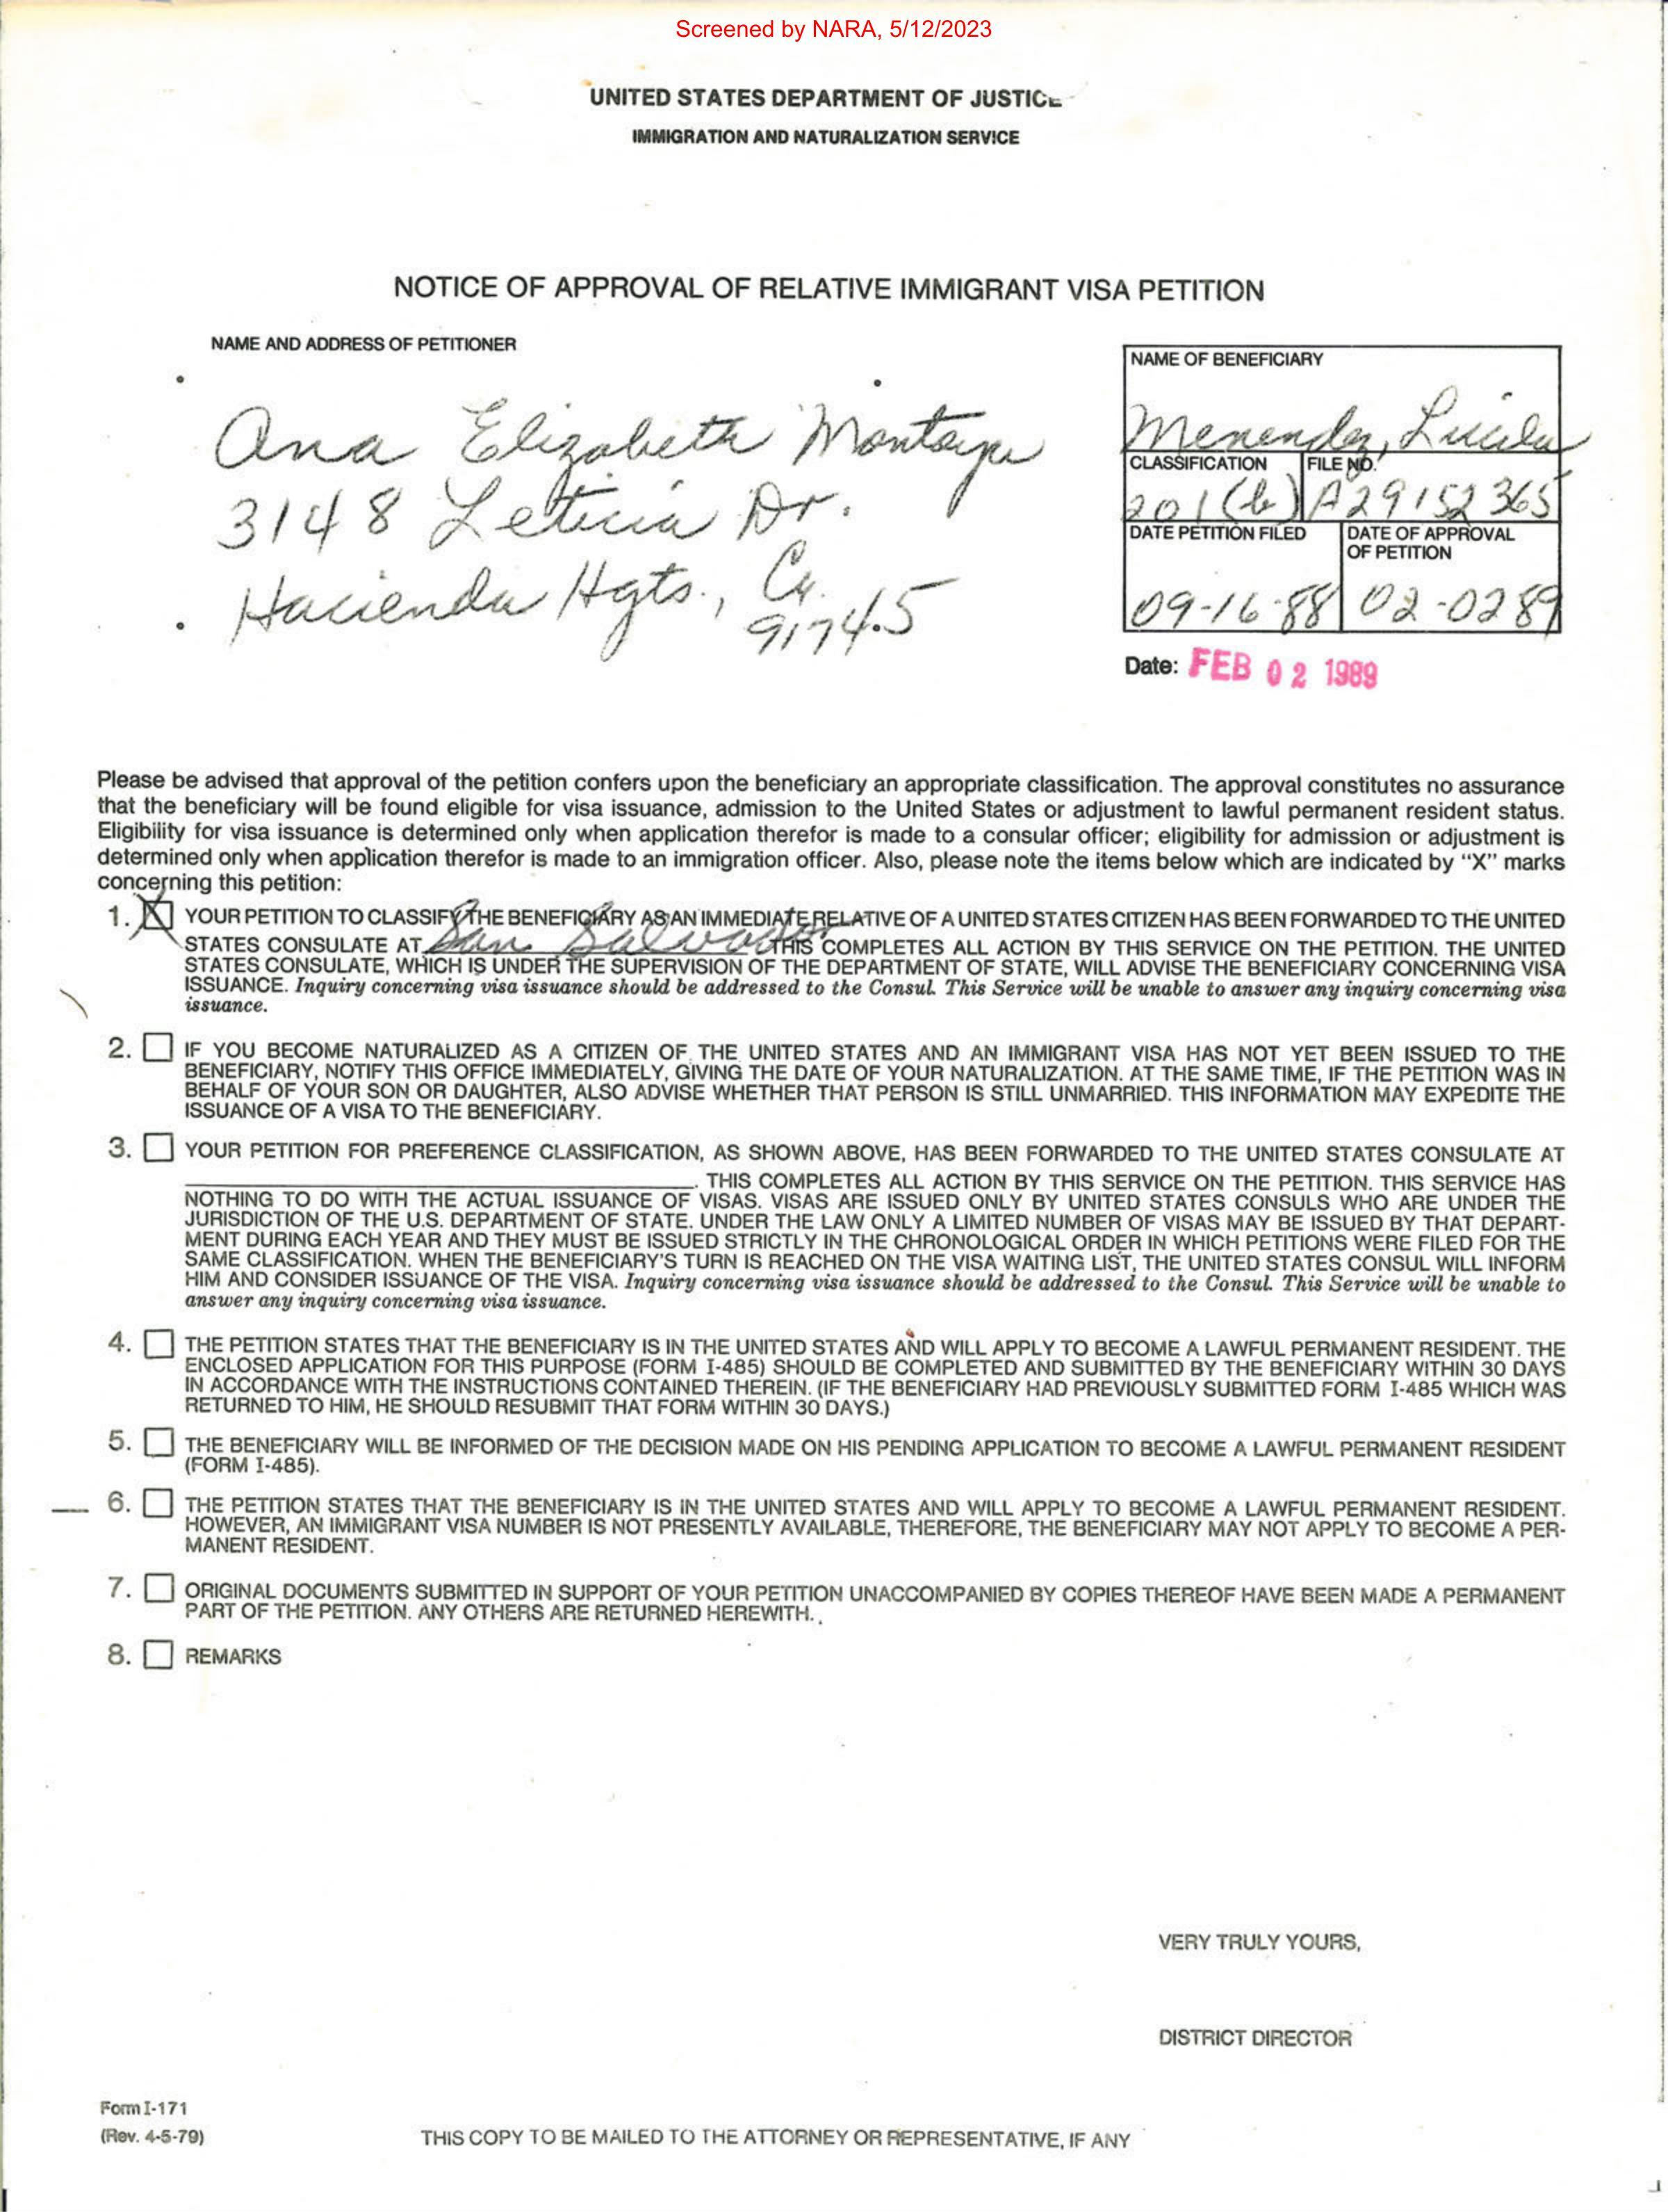 Screened by NARA, 5/12/2023
UNITED STATES DEPARTMENT OF JUSTICE
IMMIGRATION AND NATURALIZATION SERVICE
NOTICE OF APPROVAL OF RELATIVE IMMIGRANT VISA PETITION
NAME AND ADDRESS OF PETITIONER
Ana Elizabeth Montoya
3148 Leticia Dr.
Hacienda Hgts., Ca.
91745
NAME OF BENEFICIARY
Menendez, Lucila
CLASSIFICATION FILE NO.
201(b) A29152365
DATE PETITION FILED DATE OF APPROVAL
OF PETITION
09-16-88 02-0289
Date: FEB 02 1989
Please be advised that approval of the petition confers upon the beneficiary an appropriate classification. The approval constitutes no assurance
that the beneficiary will be found eligible for visa issuance, admission to the United States or adjustment to lawful permanent resident status.
Eligibility for visa issuance is determined only when application therefor is made to a consular officer; eligibility for admission or adjustment is
determined only when application therefor is made to an immigration officer. Also, please note the items below which are indicated by “X” marks
concerning this petition:
1. X YOUR PETITION TO CLASSIFY THE BENEFICIARY AS AN IMMEDIATE RELATIVE OF A UNITED STATES CITIZEN HAS BEEN FORWARDED TO THE UNITED
STATES CONSULATE AT San Salvador THIS COMPLETES ALL ACTION BY THIS SERVICE ON THE PETITION. THE UNITED
STATES CONSULATE, WHICH IS UNDER THE SUPERVISION OF THE DEPARTMENT OF STATE, WILL ADVISE THE BENEFICIARY CONCERNING VISA
ISSUANCE. Inquiry concerning visa issuance should be addressed to the Consul. This Service will be unable to answer any inquiry concerning visa
issuance.
2. IF YOU BECOME NATURALIZED AS A CITIZEN OF THE UNITED STATES AND AN IMMIGRANT VISA HAS NOT YET BEEN ISSUED TO THE
BENEFICIARY, NOTIFY THIS OFFICE IMMEDIATELY, GIVING THE DATE OF YOUR NATURALIZATION. AT THE SAME TIME, IF THE PETITION WAS IN
BEHALF OF YOUR SON OR DAUGHTER, ALSO ADVISE WHETHER THAT PERSON IS STILL UNMARRIED. THIS INFORMATION MAY EXPEDITE THE
ISSUANCE OF A VISA TO THE BENEFICIARY.
3. YOUR PETITION FOR PREFERENCE CLASSIFICATION, AS SHOWN ABOVE, HAS BEEN FORWARDED TO THE UNITED STATES CONSULATE AT
. THIS COMPLETES ALL ACTION BY THIS SERVICE ON THE PETITION. THIS SERVICE HAS
NOTHING TO DO WITH THE ACTUAL ISSUANCE OF VISAS. VISAS ARE ISSUED ONLY BY UNITED STATES CONSULS WHO ARE UNDER THE
JURISDICTION OF THE U.S. DEPARTMENT OF STATE. UNDER THE LAW ONLY A LIMITED NUMBER OF VISAS MAY BE ISSUED BY THAT DEPART-
MENT DURING EACH YEAR AND THEY MUST BE ISSUED STRICTLY IN THE CHRONOLOGICAL ORDER IN WHICH PETITIONS WERE FILED FOR THE
SAME CLASSIFICATION. WHEN THE BENEFICIARY'S TURN IS REACHED ON THE VISA WAITING LIST, THE UNITED STATES CONSUL WILL INFORM
HIM AND CONSIDER ISSUANCE OF THE VISA. Inquiry concerning visa issuance should be addressed to the Consul. This Service will be unable to
answer any inquiry concerning visa issuance.
4. THE PETITION STATES THAT THE BENEFICIARY IS IN THE UNITED STATES AND WILL APPLY TO BECOME A LAWFUL PERMANENT RESIDENT. THE
ENCLOSED APPLICATION FOR THIS PURPOSE (FORM I-485) SHOULD BE COMPLETED AND SUBMITTED BY THE BENEFICIARY WITHIN 30 DAYS
IN ACCORDANCE WITH THE INSTRUCTIONS CONTAINED THEREIN. (IF THE BENEFICIARY HAD PREVIOUSLY SUBMITTED FORM I-485 WHICH WAS
RETURNED TO HIM, HE SHOULD RESUBMIT THAT FORM WITHIN 30 DAYS.)
5. THE BENEFICIARY WILL BE INFORMED OF THE DECISION MADE ON HIS PENDING APPLICATION TO BECOME A LAWFUL PERMANENT RESIDENT
(FORM I-485).
6. THE PETITION STATES THAT THE BENEFICIARY IS IN THE UNITED STATES AND WILL APPLY TO BECOME A LAWFUL PERMANENT RESIDENT.
HOWEVER, AN IMMIGRANT VISA NUMBER IS NOT PRESENTLY AVAILABLE, THEREFORE, THE BENEFICIARY MAY NOT APPLY TO BECOME A PER-
MANENT RESIDENT.
7. ORIGINAL DOCUMENTS SUBMITTED IN SUPPORT OF YOUR PETITION UNACCOMPANIED BY COPIES THEREOF HAVE BEEN MADE A PERMANENT
PART OF THE PETITION. ANY OTHERS ARE RETURNED HEREWITH.
8. REMARKS
VERY TRULY YOURS,
DISTRICT DIRECTOR
Form I-171
(Rev. 4-5-79)
THIS COPY TO BE MAILED TO THE ATTORNEY OR REPRESENTATIVE, IF ANY